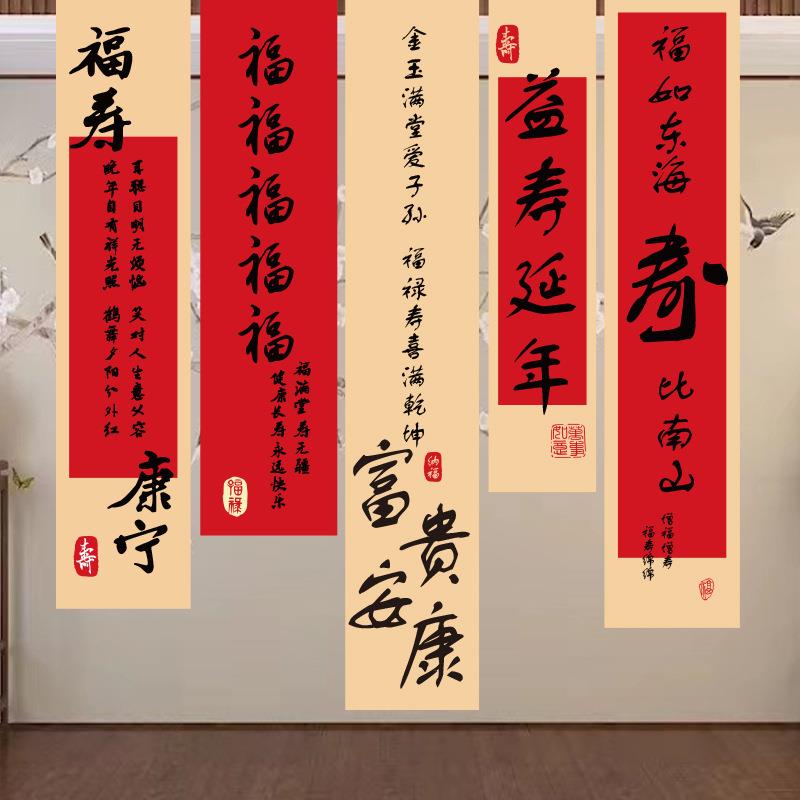 福寿
耳聪目明无烦恼 笑对人生意从容
晚年自有祥光照 鹤舞夕阳分外红
康宁
寿
福福福福福
福满堂寿无疆
健康长寿永远快乐
福禄
金玉满堂爱子孙 福禄寿喜满乾坤
纳福
富貴
安康
寿
益寿延年
萬事
如意
福如东海
寿
比南山
增福增寿
福寿绵绵
福